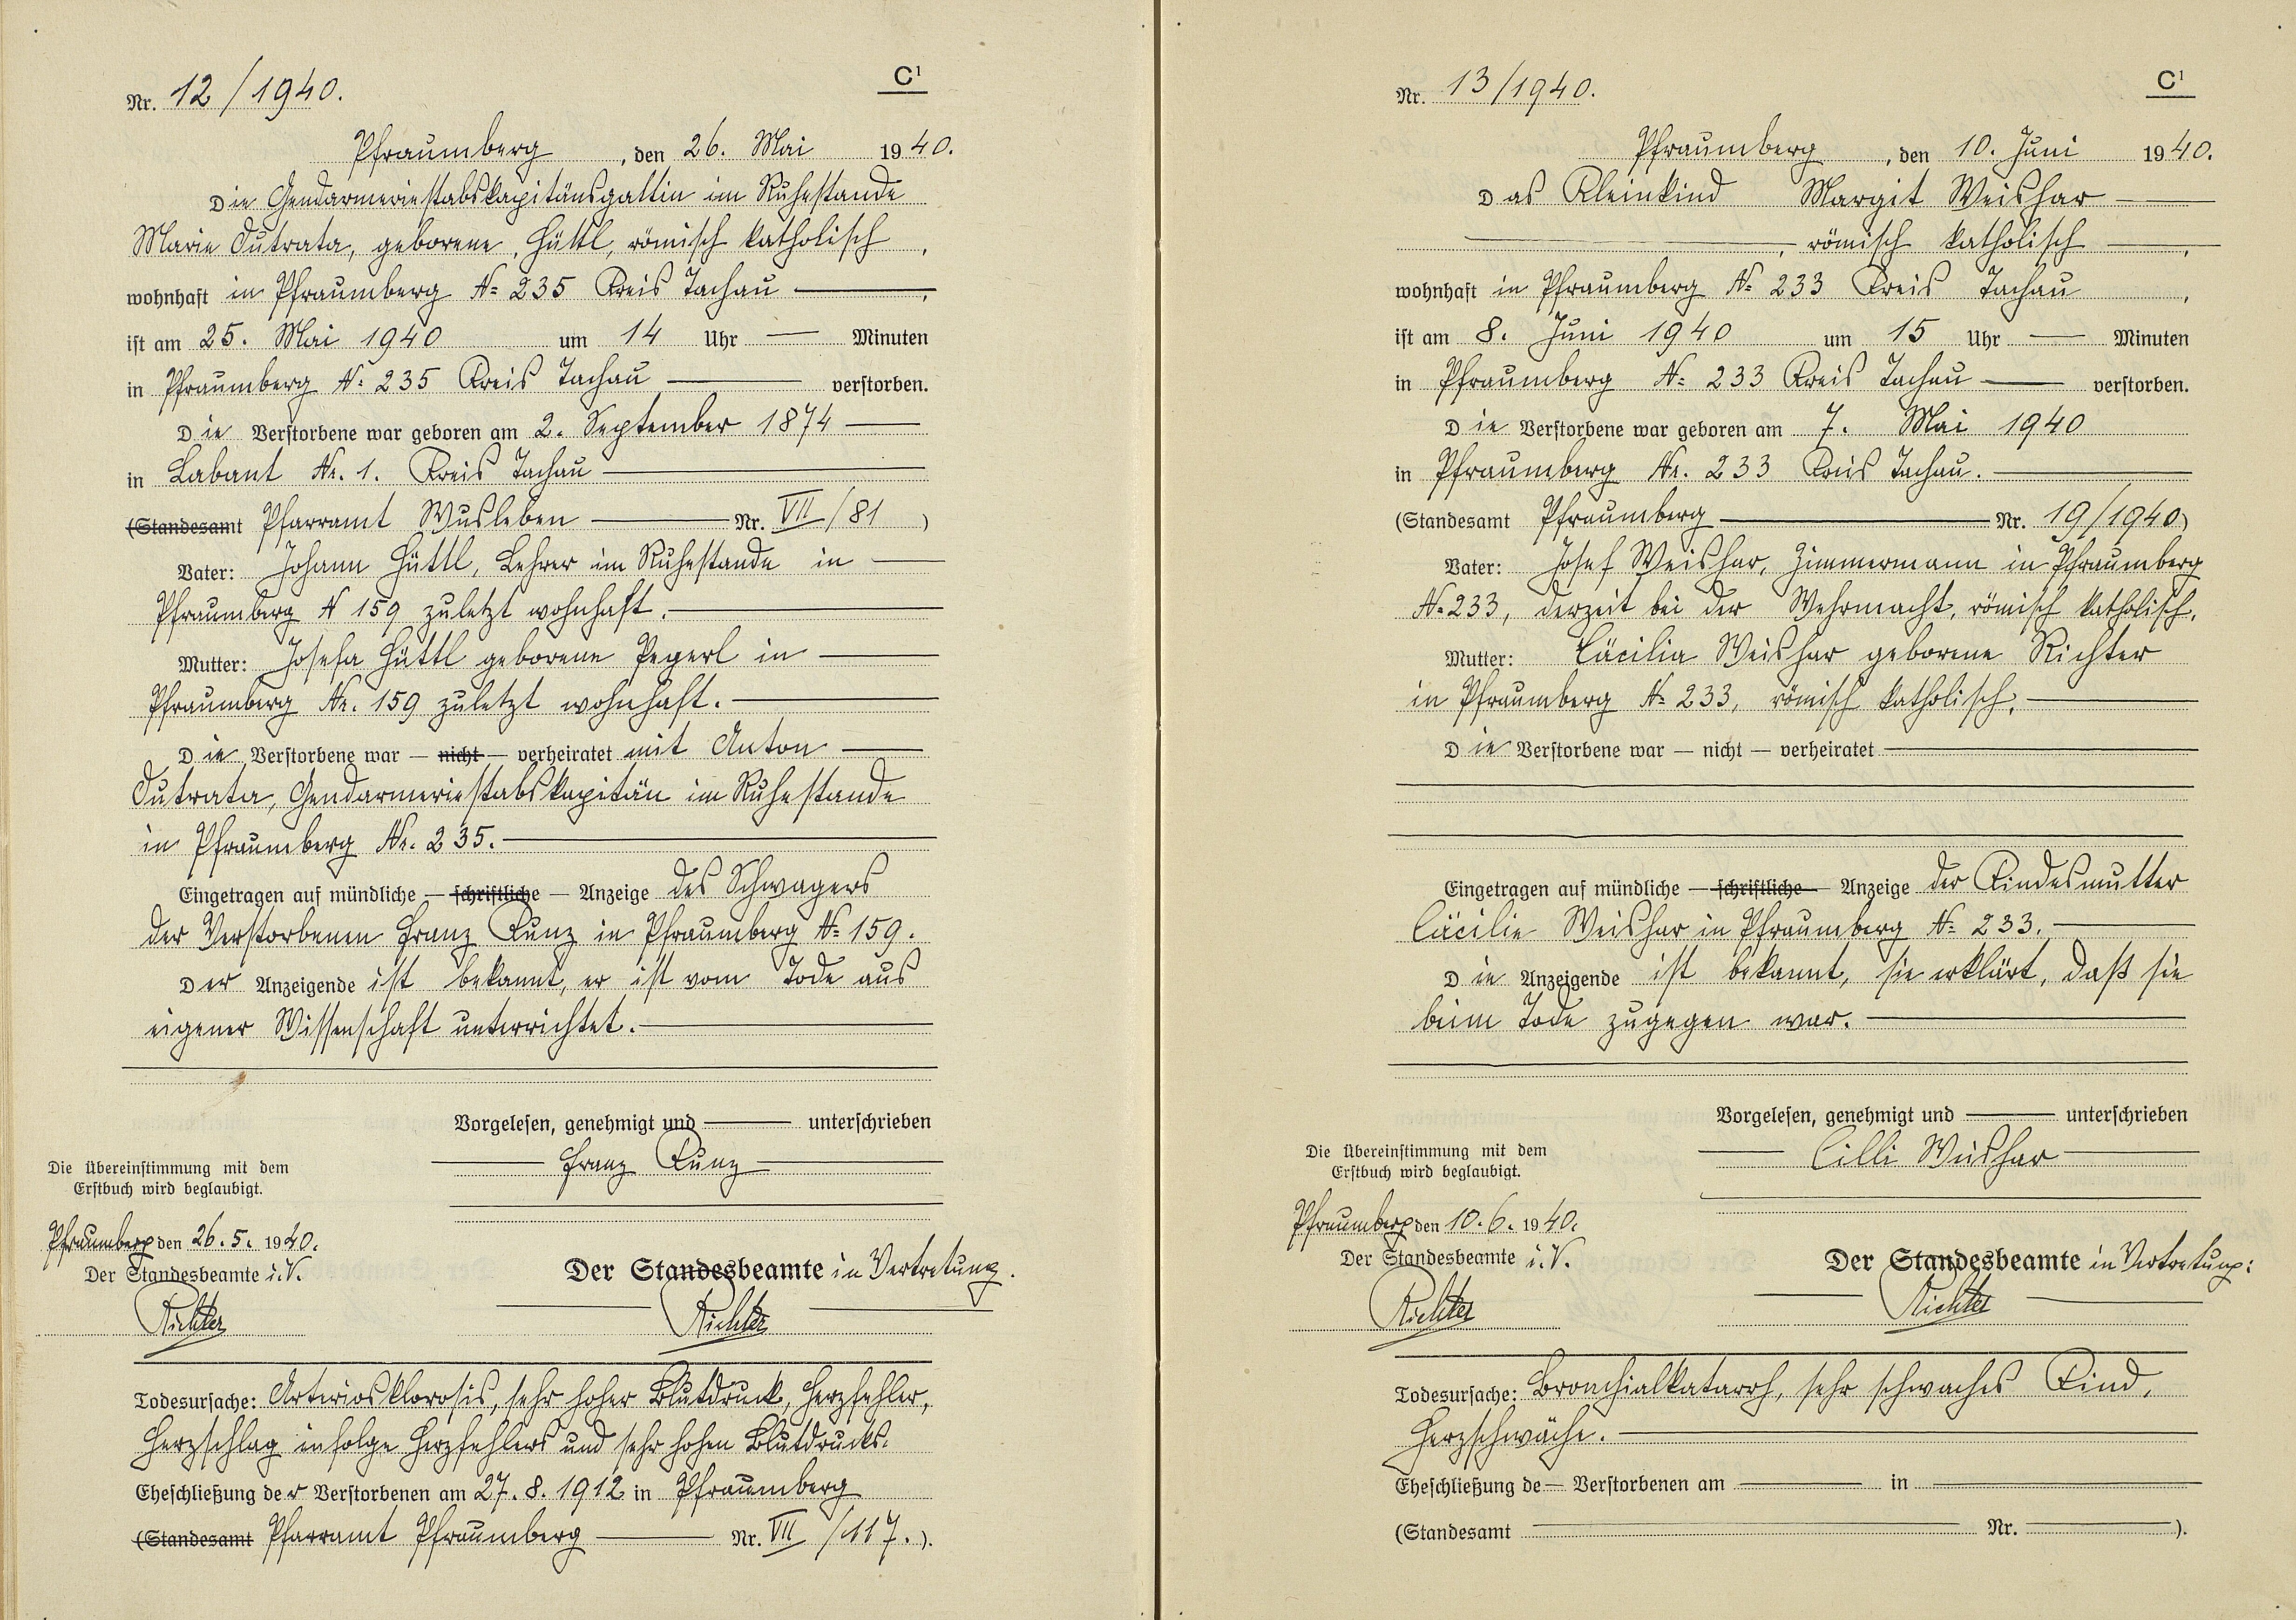 Nr. 12/1940.
C¹
Pfraumberg, den 26. Mai 1940.
Die Gendarmeriestabskapitänsgattin im Ruhestande
Marie Dutrata, geborene Hüttl, römisch katholisch,
wohnhaft in Pfraumberg № 235 Kreis Tachau —,
ist am 25. Mai 1940 um 14 Uhr — Minuten
in Pfraumberg № 235 Kreis Tachau — verstorben.
Die Verstorbene war geboren am 2. September 1874 —
in Labant Nr. 1. Kreis Tachau —
(Standesamt Pfarramt Wusleben — Nr. VII/81)
Vater: Johann Hüttl, Lehrer im Ruhestande in —
Pfraumberg N 159 zuletzt wohnhaft. —
Mutter: Josefa Hüttl geborene Pegerl in —
Pfraumberg Nr. 159 zuletzt wohnhaft. —
Die Verstorbene war — nicht — verheiratet mit Anton —
Dutrata, Gendarmeriestabskapitän im Ruhestande
in Pfraumberg Nr. 235. —
Eingetragen auf mündliche — schriftliche — Anzeige des Schwagers
der Verstorbenen Franz Kunz in Pfraumberg № 159.
Der Anzeigende ist bekannt, er ist vom Tode aus
eigener Wissenschaft unterrichtet. —
Vorgelesen, genehmigt und — unterschrieben
Franz Kunz
Die Übereinstimmung mit dem
Erstbuch wird beglaubigt.
Pfraumberg den 26.5. 1940.
Der Standesbeamte i.V.
Richter
Der Standesbeamte in Vertretung.
Richter
Todesursache: Arteriosklorosis, sehr hoher Blutdruck, Herzfehler,
Herzschlag infolge Herzfehlers und sehr hohen Blutdrucks.
Eheschließung der Verstorbenen am 27.8.1912 in Pfraumberg
(Standesamt Pfarramt Pfraumberg — Nr. VII/117.).
Nr. 13/1940.
C¹
Pfraumberg, den 10. Juni 1940.
Das Kleinkind Margit Weishar —
—, römisch katholisch —,
wohnhaft in Pfraumberg № 233 Kreis Tachau,
ist am 8. Juni 1940 um 15 Uhr — Minuten
in Pfraumberg № 233 Kreis Tachau — verstorben.
Die Verstorbene war geboren am 7. Mai 1940
in Pfraumberg Nr. 233 Kreis Tachau. —
(Standesamt Pfraumberg — Nr. 19/1940)
Vater: Josef Weishar, Zimmermann in Pfraumberg
№ 233, derzeit bei der Wehrmacht, römisch katholisch.
Mutter: Cäcilia Weishar geborene Richter
in Pfraumberg № 233, römisch katholisch. —
Die Verstorbene war — nicht — verheiratet —
Eingetragen auf mündliche — schriftliche — Anzeige der Kindesmutter
Cäcilie Weishar in Pfraumberg № 233. —
Die Anzeigende ist bekannt, sie erklärt, daß sie
beim Tode zugegen war. —
Vorgelesen, genehmigt und — unterschrieben
Cilli Weishar
Die Übereinstimmung mit dem
Erstbuch wird beglaubigt.
Pfraumberg den 10.6. 1940.
Der Standesbeamte i.V.
Richter
Der Standesbeamte in Vertretung:
Richter
Todesursache: Bronchialkatarrh, sehr schwaches Kind,
Herzschwäche. —
Eheschließung de— Verstorbenen am — in —
(Standesamt — Nr. —).